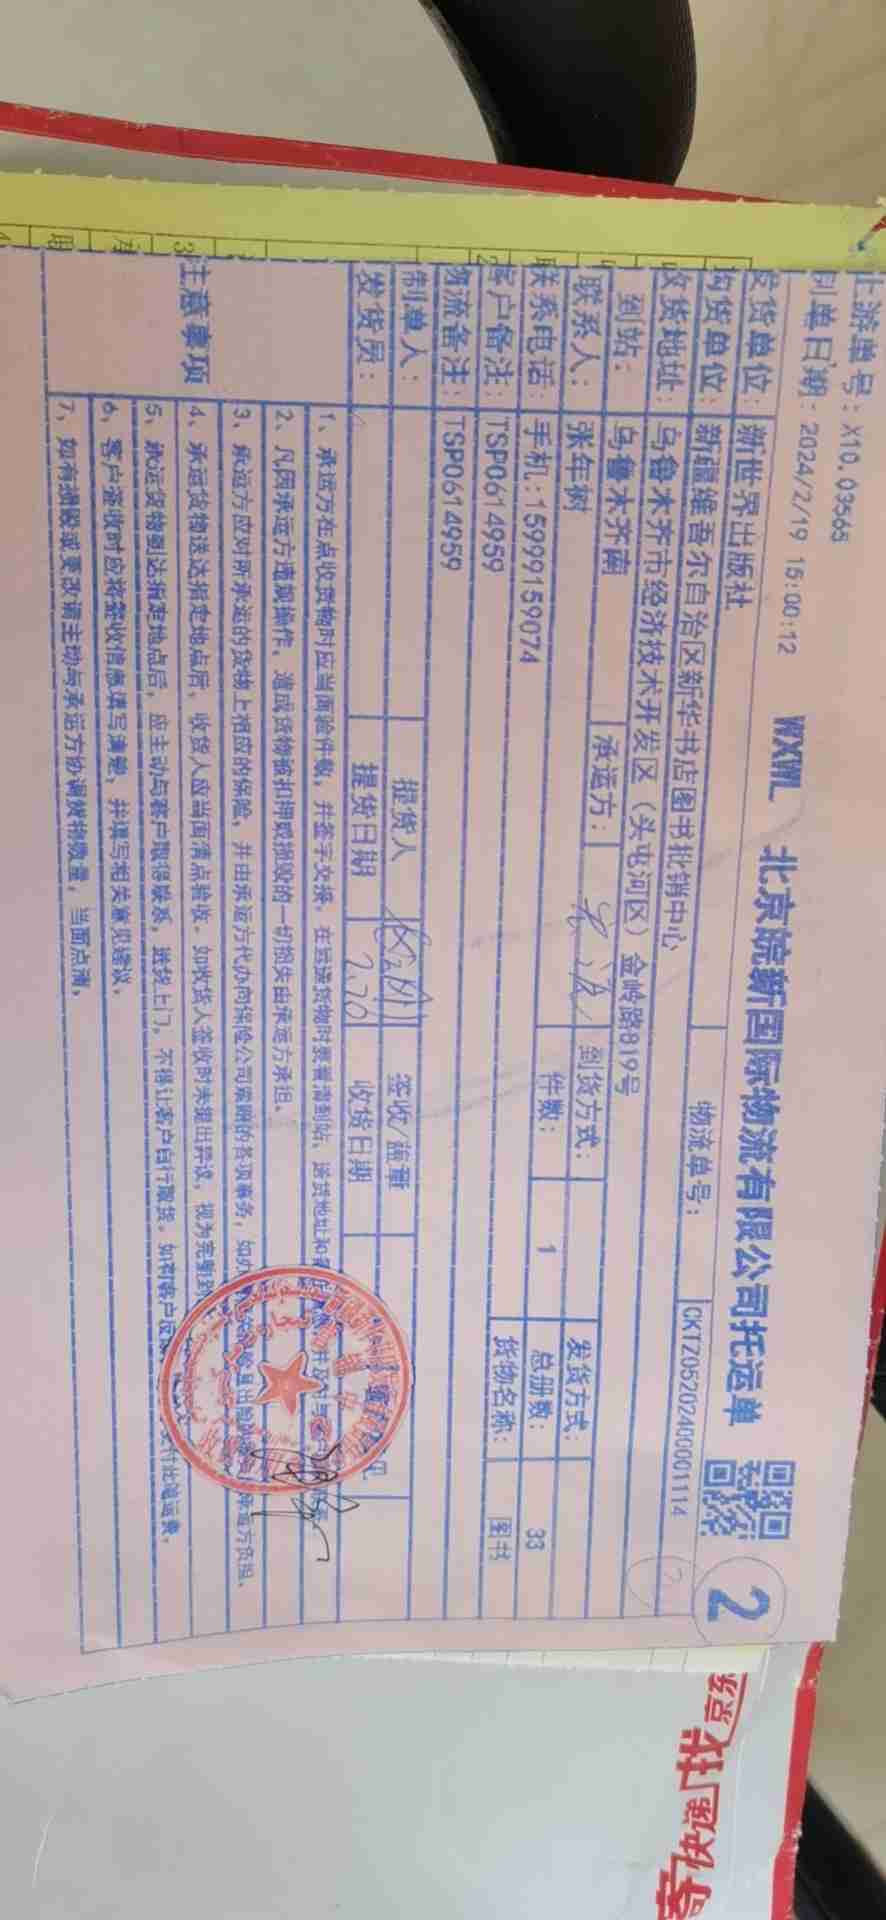 上游单号：X10.03565
制单日期：2024/2/19 15:00:12
WXWL 北京皖新国际物流有限公司托运单
2
发货单位：新世界出版社
物流单号：CKTZ0520240001114
购货单位：新疆维吾尔自治区新华书店图书批销中心
收货地址：乌鲁木齐市经济技术开发区（头屯河区）金岭路819号
到站：乌鲁木齐南 承运方： 到货方式： 发货方式：
联系人：张年树 件数：1 总册数：33
联系电话：手机：15999159074 货物名称：图书
客户备注：TSP0614959
物流备注：TSP0614959
制单人： 提货人 签收/盖章
发货员： 提货日期 2.20 收货日期
注意事项
1、承运方在点收货物时应当面验件数，并签字交接。在运送货物时要看清到站、送货地址和
2、凡因承运方违规操作，造成货物被扣押或损毁的一切损失由承运方承担。
3、承运方应对所承运的货物上相应的保险，并由承运方代办向保险公司索赔的各项事务，如
4、承运货物送达指定地点后，收货人应当面清点验收。如收货人签收时未提出异议，视为完
5、承运货物到达指定地点后，应主动与客户取得联系，送货上门，不得让客户自行取货。如有客户
6、客户签收时应将签收信息填写清楚，并填写相关意见建议。
7、如有损毁或更改请主动与承运方协调货物数量，当面点清。
京东
快递
寄